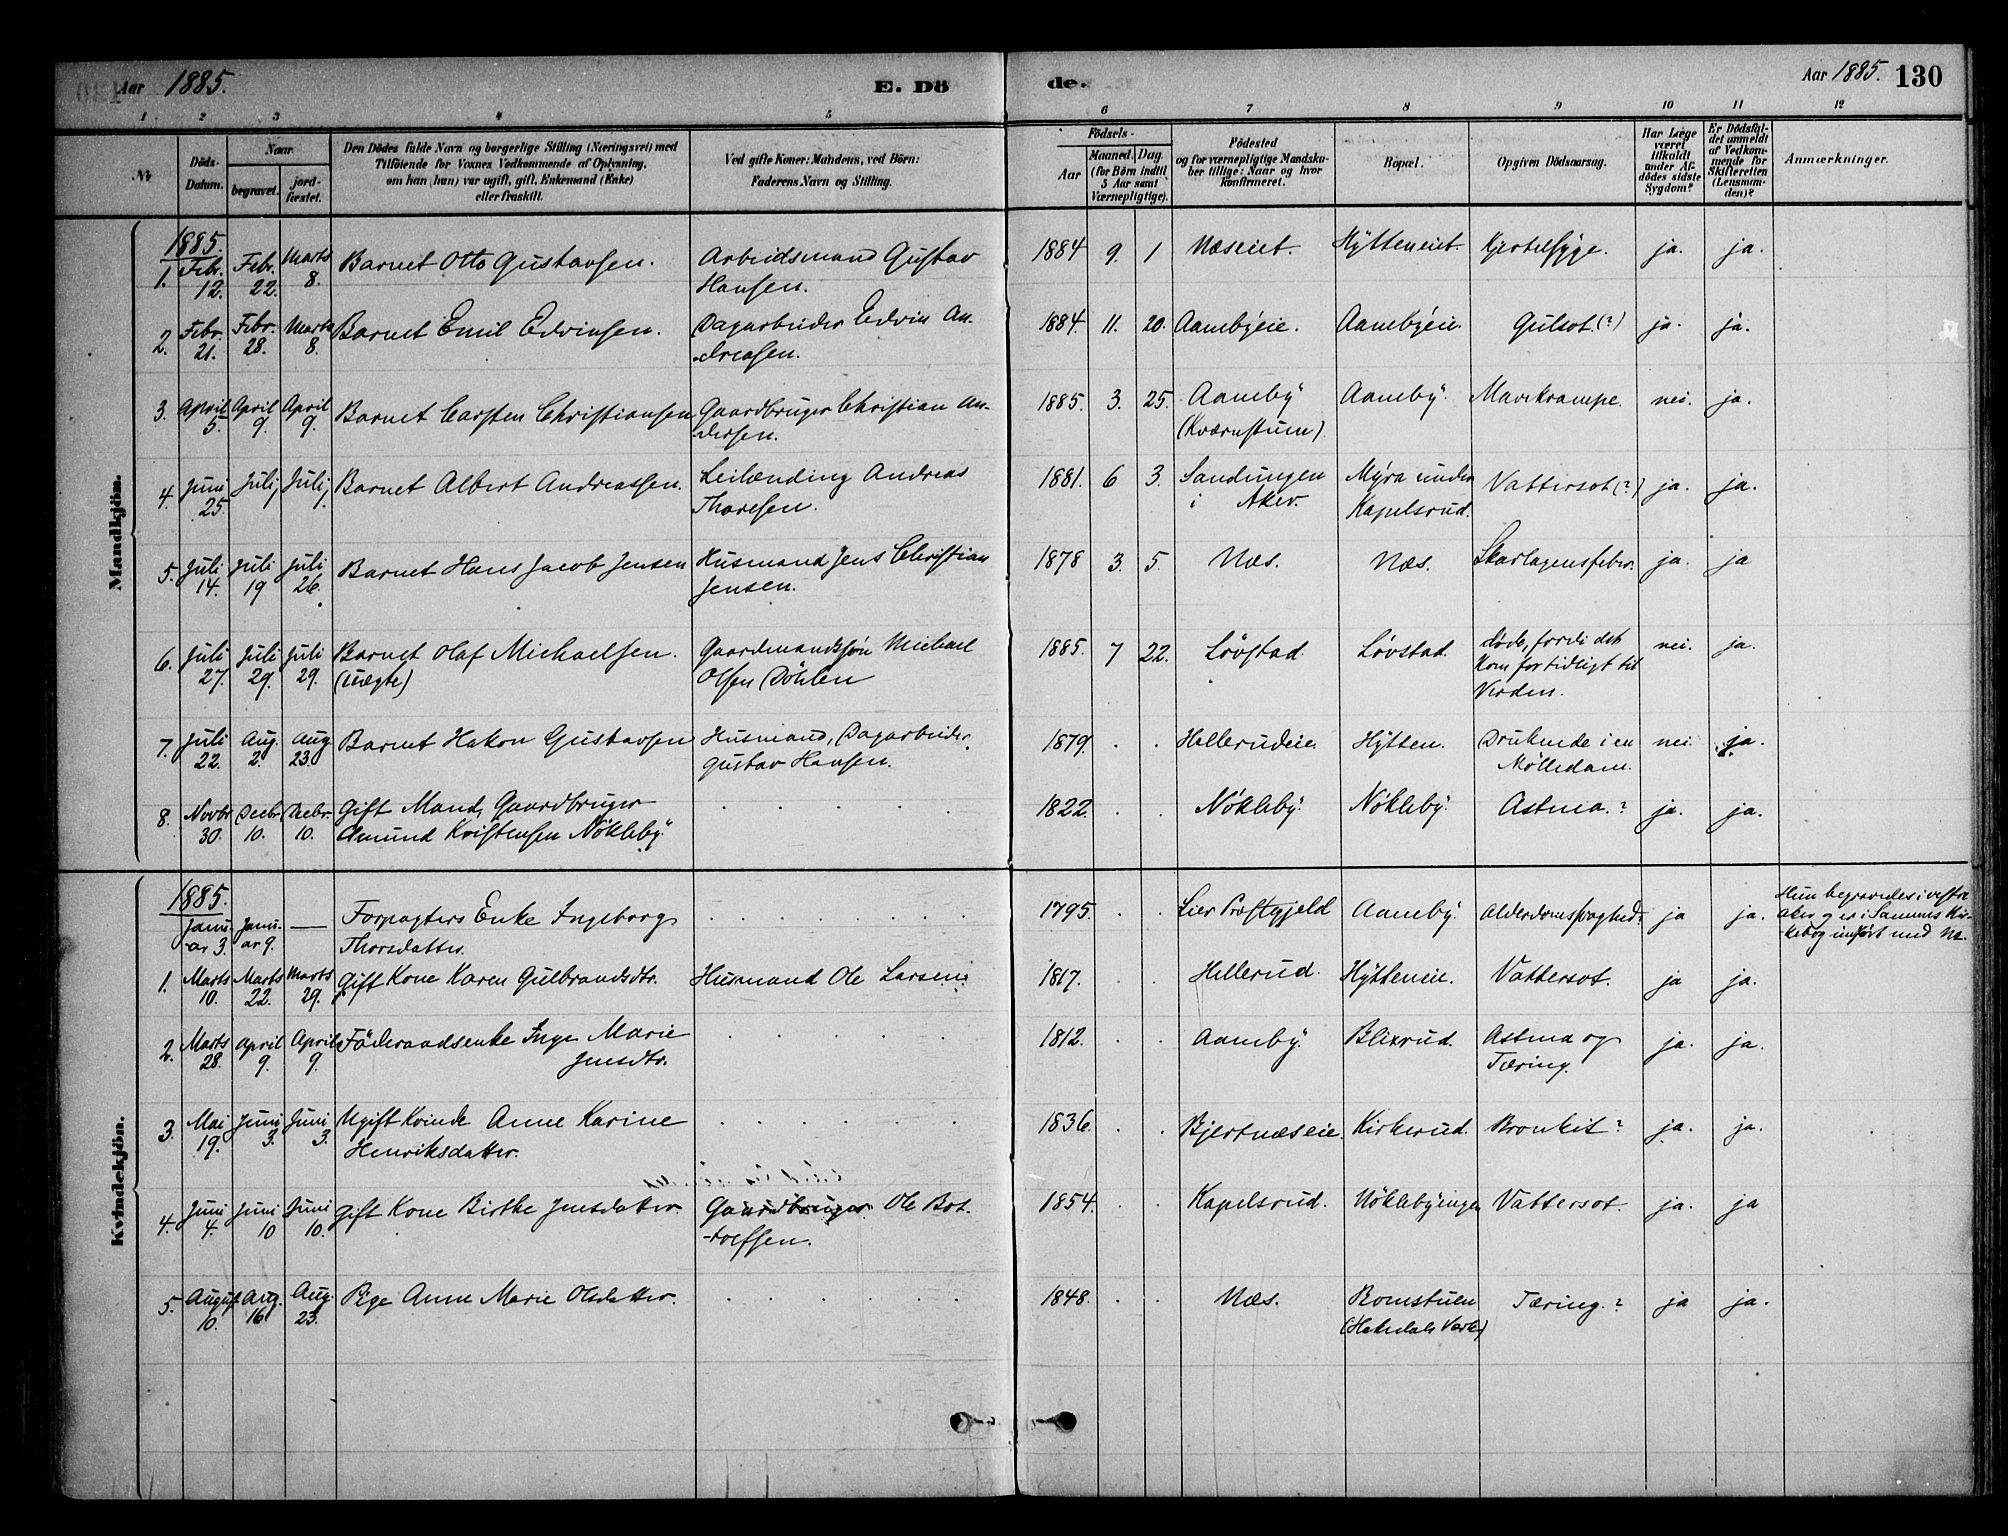 Aar 1885. E. Dö de. Aar 1885. 130
1 2 3 4 5 6 7 8 9 10 11 12
№ Döds-Datum. Naar begravet. jordfæstet.
Den Dödes fulde Navn og borgerlige Stilling (Næringsvei) med
Tilföiende for Voxnes Vedkommende af Oplysning,
om han (hun) var ugift, gift, Enkemand (Enke)
eller fraskilt.
Ved gifte Koner: Mandens, ved Börn:
Faderens Navn og Stilling.
Födsels-
Aar Maaned. Dag.
(for Börn indtil
5 Aar samt
Værnepligtige).
Födested
og for værnepligtige Mandskaber
tillige: Naar og hvor
konfirmeret.
Bopæl.
Opgiven Dödsaarsag.
Har Læge
været
tilkaldt
under Afdödes
sidste
Sygdom?
Er Dödsfaldet
anmeldt
af Vedkommende
for
Skifteretten
(Lensmanden)?
Anmærkninger.
Mandkjön.
1885.
1. Febr. 12. Febr. 22. Marts 8. Barnet Otto Gustavsen. Arbeidsmand Gustav Hansen. 1884 9. 1 Næseiet. Hÿtteneiet. Kjertelsyge. ja. ja.
2. Febr. 21. Febr. 28. Marts 8. Barnet Emil Edvinsen. Dagarbeider Edvin Andreasen. 1884 11. 20. Aambyeie. Aambyeie Gulsot.(?) ja. ja.
3. April 5. April 9. April 9. Barnet Carsten Christiansen Gaardbruger Christian Andersen. 1885. 3. 25. Aamby (Kværnstuen) Aamby. Mavekrampe. nei. ja.
4. Juni 25. Juli 1 Juli 1 Barnet Albert Andreassen. Leilænding Andreas Thoresen. 1881. 6 3. Sandungen i Aker. Mÿra under Kapelsrud. Vattersot(?) ja. ja.
5. Juli 14. Juli 19 Juli 26. Barnet Hans Jacob Jensen Husmand Jens Christian Jensen. 1878 3. 5. Næs. Næs. Skarlagensfeber. ja. ja
6. Juli 27. Juli 29. Juli 29. Barnet Olaf Michaelsen. (uægte) Gaardmandssøn Michael Olsen Döhlen 1885. 7 22. Løvstad. Løvstad. døde, fordi det kom for tidligt til Verden. nei. ja.
7. Juli 22. Aug. 2. Aug 23. Barnet Hakon Gustavsen Husmand, Dagarbeider Gustav Hansen. 1879. . . Hellerudeie Hÿtten. Druknede i en Mølledam. nei. ja.
8. Novbr 30. Decbr 10. Decbr. 10. Gift Mand, Gaardbruger Amund Kristensen Nökleby 1822. . . Nökleby. Nökleby. Astma.? ja. ja.
Kvindekjön.
1885.
Januar 3. Januar 9. — Forpagters Enke Ingeborg Thorsdatter. 1795. . . Lier Præstegjeld Aamby. Alderdomssvaghed. ja ja. Hun begravedes i vestre Aker og er i Sammes Kirkebog indført med No.
1. Marts 10. Marts 22. Marts 29. Gift Kone Karen Gulbrandsdtr. Husmand Ole Larsen. 1817. . . Hellerud. Hÿtteneie. Vattersot. ja ja.
2. Marts 28. April 9. April 9. Föderaadsenke Inge Marie Jensdtr. 1812. . . Aamby. Blixrud. Astma og Tæring. ja. ja.
3. Mai 19. Juni 3. Juni 3. Ugift Kvinde Anne Karine Henriksdatter. 1836. . . Bjertnæseie. Kirkerud. Bronkit? ja. ja.
4. Juni 4. Juni 10 Juni 10. Gift Kone Birthe Jensdatter. Gaardbruger Ole Bottolfsen. 1854. . . Kapelsrud. Nöklebyengen Vattersot. ja. ja
5. August 10. Aug. 16 Aug. 23. Pige Anne Marie Olsdatter. 1848. . . Næs. Romstuen (Hakedals Værk) Tæring.? ja ja.